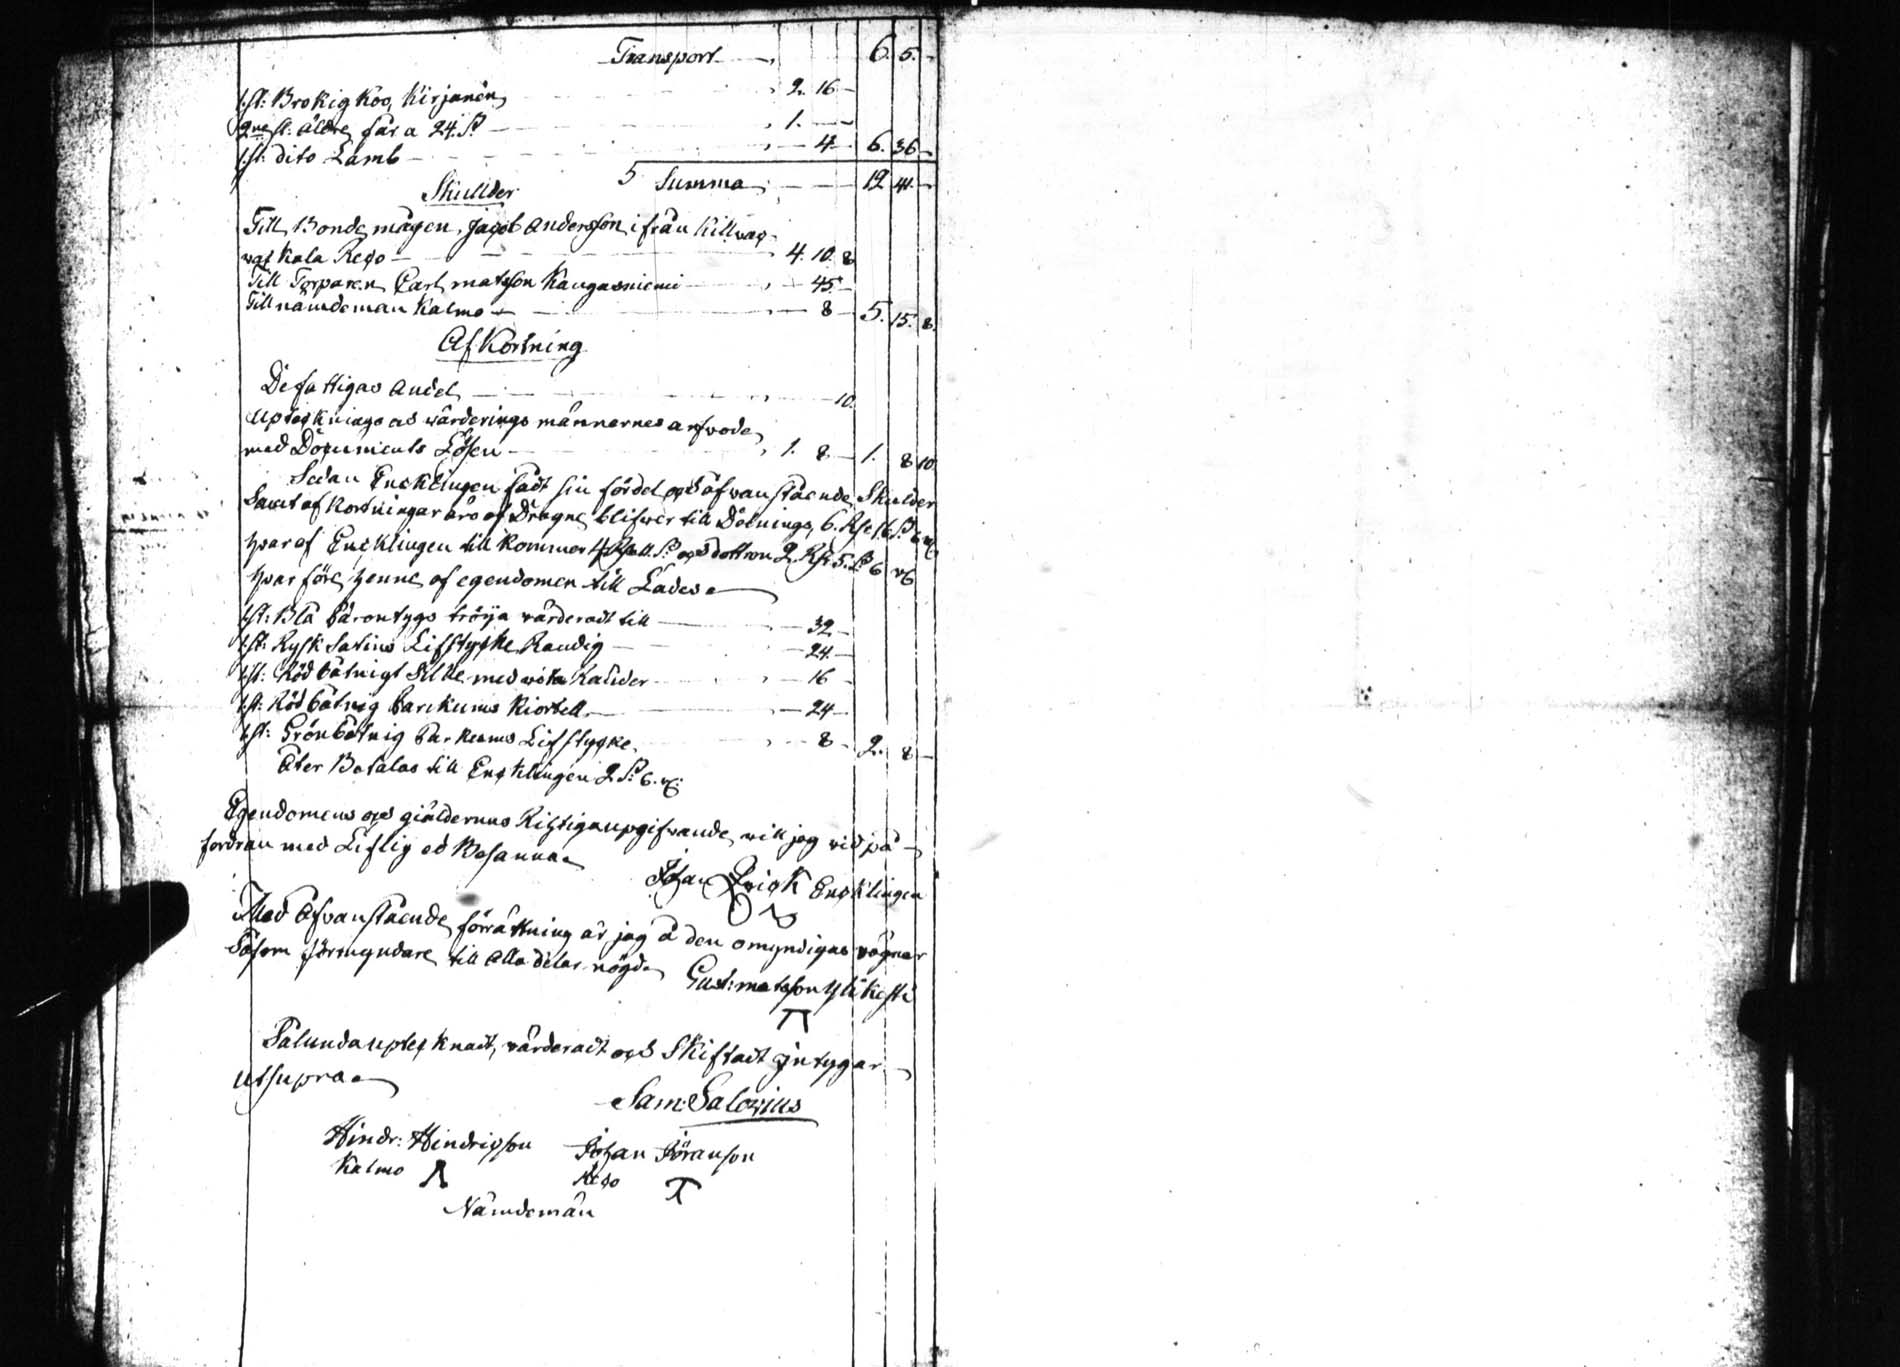 Transport — 6. 5. —
1. st: Brokig Koo, Kirjanen — 2. 16 —
2ne st: äldre får a 24. S — 1. — —
1. st: dito Lamb — 4 — 6. 36 —
5 Summa — 12 41. —
Skullder
Till Bonde mågen, Jacob Andersson ifrån Kill
Kala Reko — 4. 10. 8
Till Torparen Carl matsson Kangasniemi — 45. —
Till nämdeman Kalmo — 8 — 5. 15. 8.
Af Kortning
De fattigas andel — 10.
Uptecknings och värderings männernes arfvode
med Documents Lösen — 1. 8 — 1. 8 10.
Sedan Encklingen fådt sin fördel och ofvanstående Skulder
Samt afkortningar äro af Dragne, blifver till Delnings, 6. Rs: 16. S
hvar af Encklingen till kommer 4 Rs 11. S och dottren 2. Rs: 5. S 6
hvarföre henne af egendomen till Lades
1. st: Blå Barontygs tröija värderadt till — 32 —
1. st: Rysk Satins Lifstycke Randig — 24 —
1. st: Röd båtnigt med vita Ränder — 16 —
1. st: Röd båtnig barckums Kiortell — 24 —
1. st: Grön båtnig barkums Lifstycke — 8 — 2. 8 —
Åter Betalas till Encklingen 2 S: 6. r:
Egendomens och giäldernas Richtiga upgifvande, vill jag vid på-
fordran med Liflig ed Besanna
Johan Erick Encklingen
Med ofvanstående förrättning är jag å den omyndigas vägnar
Såsom förmyndare till alla delar nögd. Gust: matsson Ylikesti
Sålunda uptecknadt, värderadt och Skiftadt intygar
utsupra
Sam: Salovius
Hindr: Hindricsson Johan Jöransson
Kalmo Reko
Nämdemän